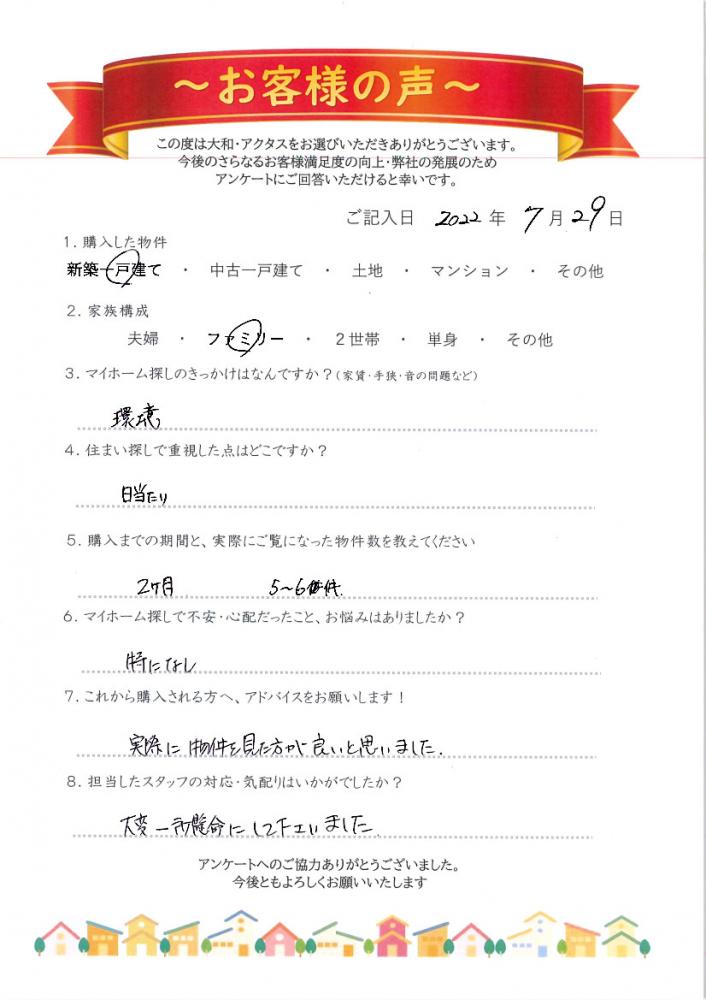 ～お客様の声～
この度は大和・アクタスをお選びいただきありがとうございます。
今後のさらなるお客様満足度の向上・弊社の発展のため
アンケートにご回答いただけると幸いです。
ご記入日 2022 年 7 月 29 日
1. 購入した物件
新築一戸建て ・ 中古一戸建て ・ 土地 ・ マンション ・ その他
2. 家族構成
夫婦 ・ ファミリー ・ 2世帯 ・ 単身 ・ その他
3. マイホーム探しのきっかけはなんですか？(家賃・手狭・音の問題など)
環境
4. 住まい探しで重視した点はどこですか？
日当たり
5. 購入までの期間と、実際にご覧になった物件数を教えてください
2ヶ月 5～6物件.
6. マイホーム探しで不安・心配だったこと、お悩みはありましたか？
特になし
7. これから購入される方へ、アドバイスをお願いします！
実際に物件を見た方が良いと思いました.
8. 担当したスタッフの対応・気配りはいかがでしたか？
大変一所懸命にして下さいました.
アンケートへのご協力ありがとうございました。
今後ともよろしくお願いいたします